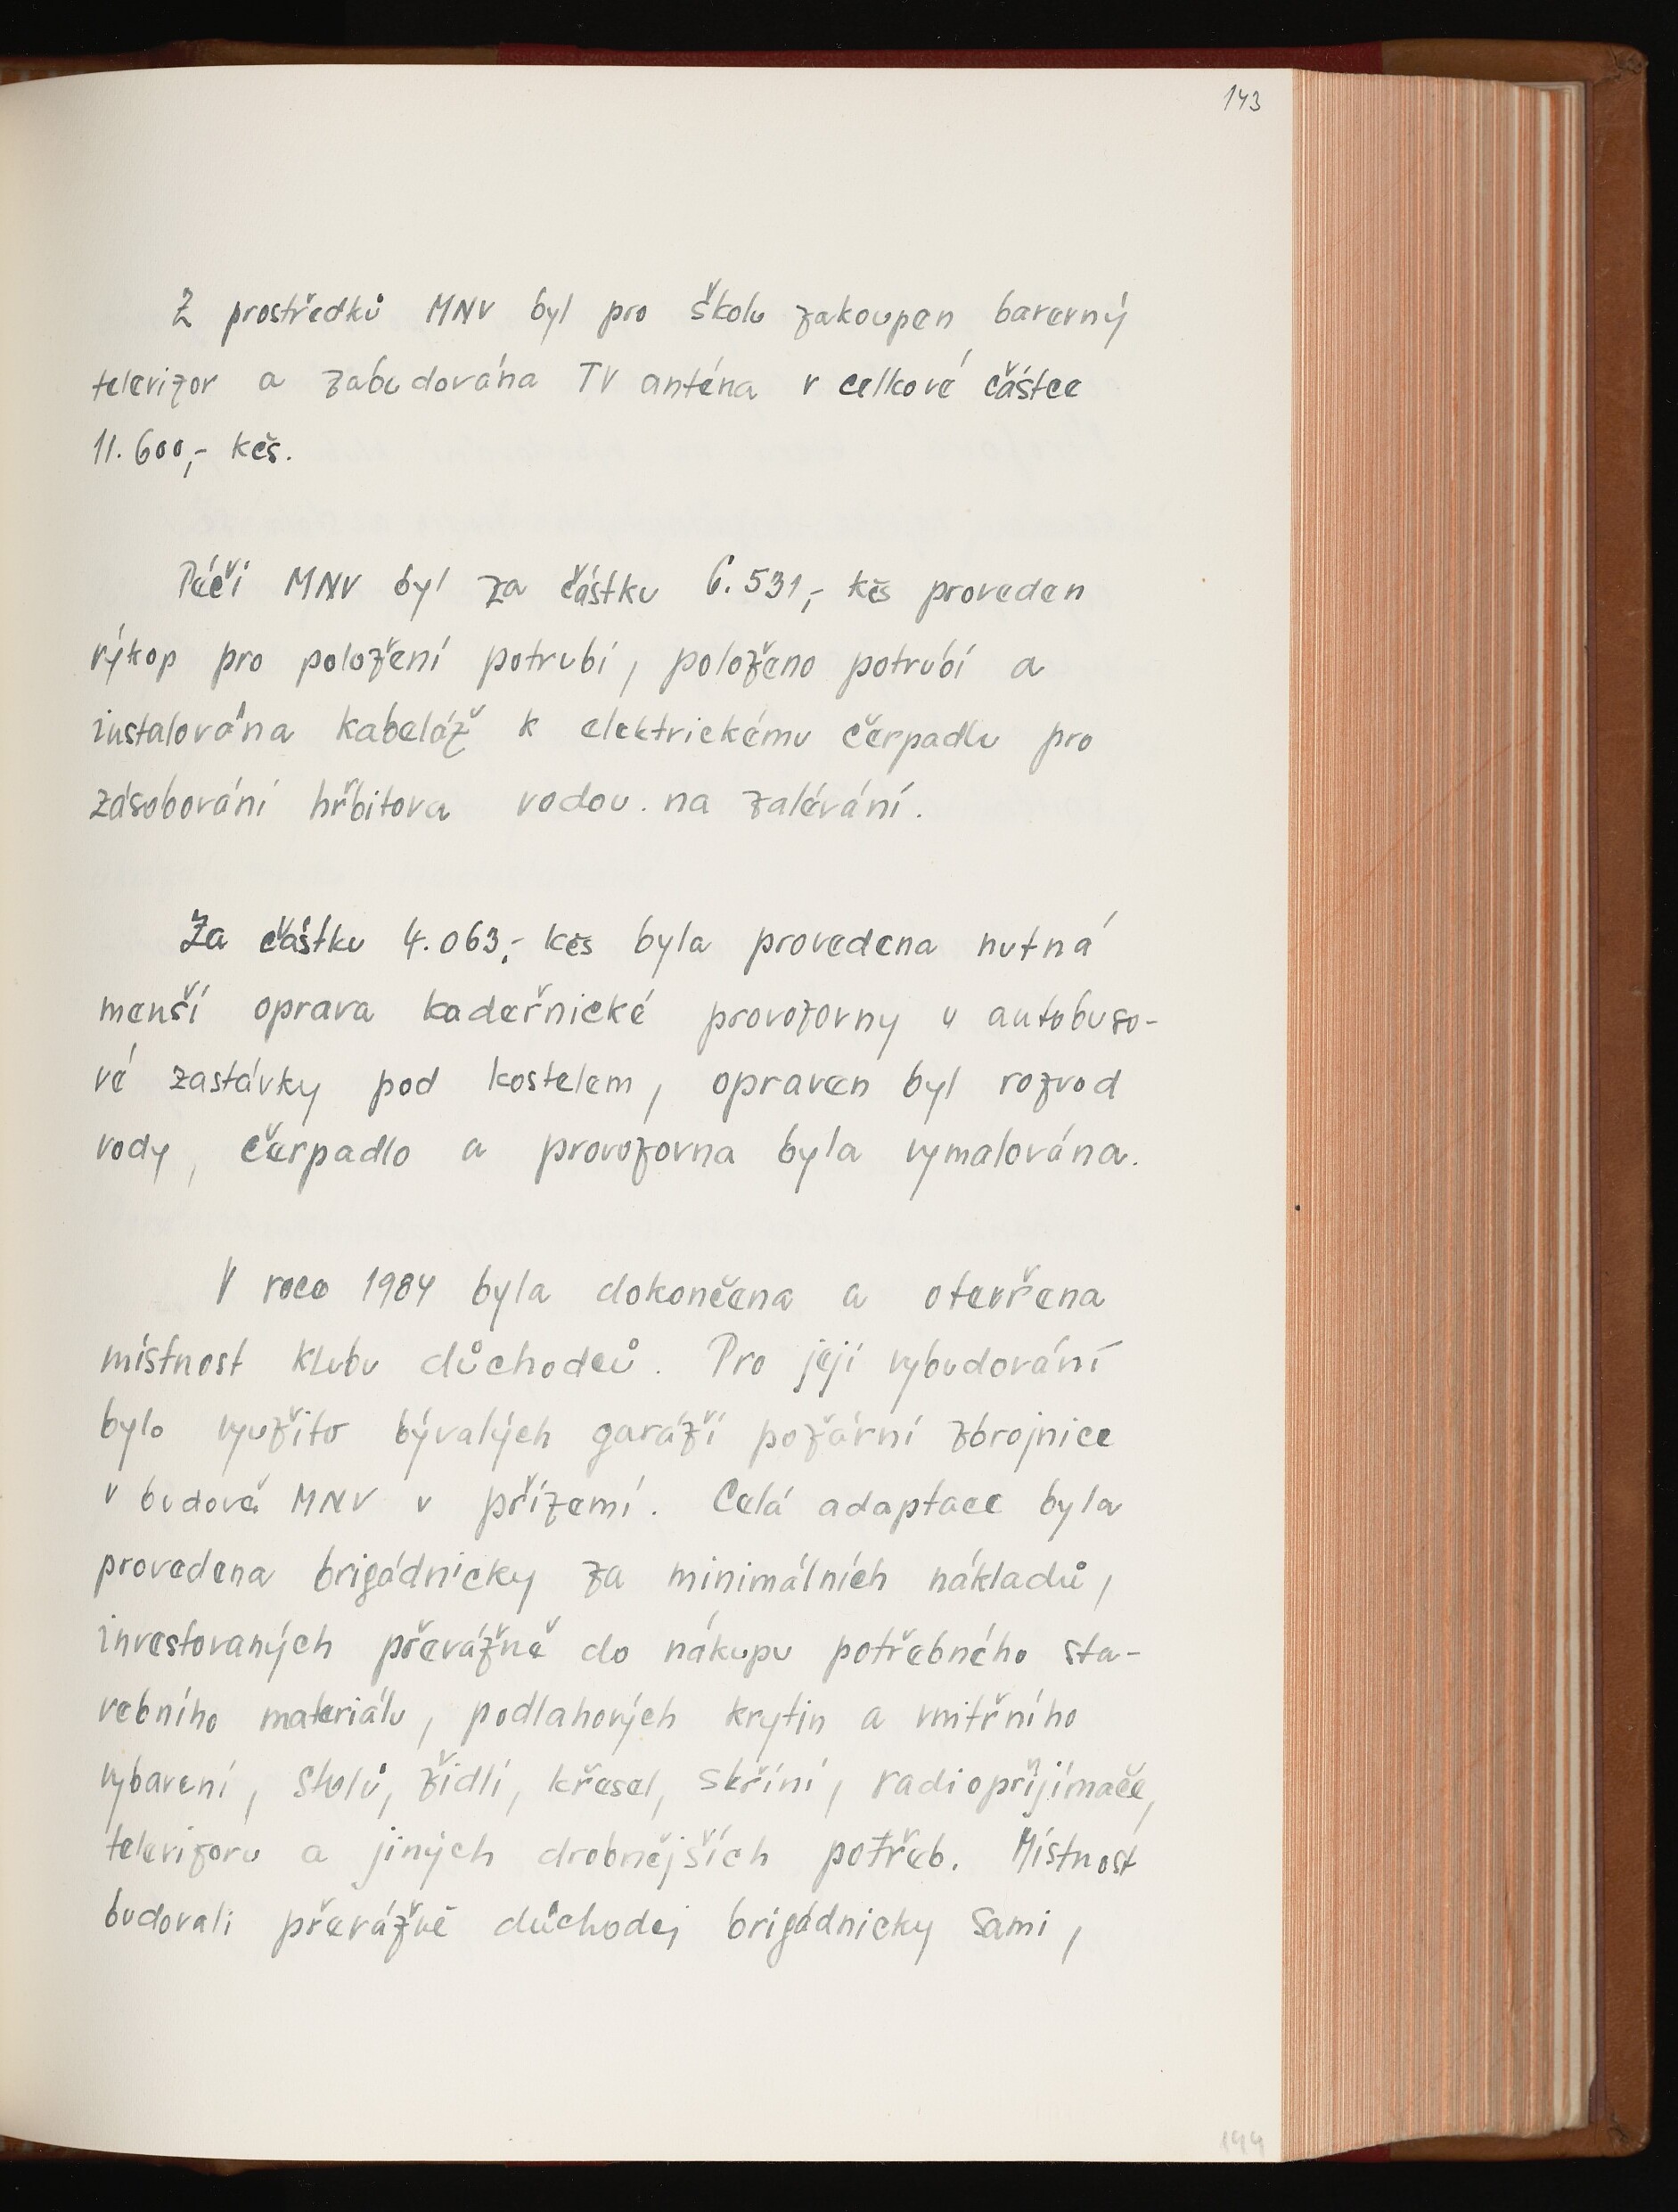 143
Z prostředků MNV byl pro školu zakoupen barevný
televizor a zabudována TV anténa v celkové částce
11.600,- kčs.
Péčí MNV byl za částku 6.531,- kčs proveden
výkop pro položení potrubí, položeno potrubí a
instalována kabeláž k elektrickému čerpadlu pro
zásobování hřbitova vodou na zalévání.
Za částku 4.063,- kčs byla provedena nutná
menší oprava kadeřnické provozovny u autobuso-
vé zastávky pod kostelem, opraven byl rozvod
vody, čerpadlo a provozovna byla vymalována.
V roce 1984 byla dokončena a otevřena
místnost klubu důchodců. Pro její vybudování
bylo využito bývalých garáží požární zbrojnice
v budově MNV v přízemí. Celá adaptace byla
provedena brigádnicky za minimálních nákladů,
investovaných převážně do nákupu potřebného sta-
vebního materiálu, podlahových krytin a vnitřního
vybavení, stolů, židlí, křesel, skříní, radiopřijímače,
televizoru a jiných drobnějších potřeb. Místnost
budovali převážně důchodci brigádnicky sami,
144